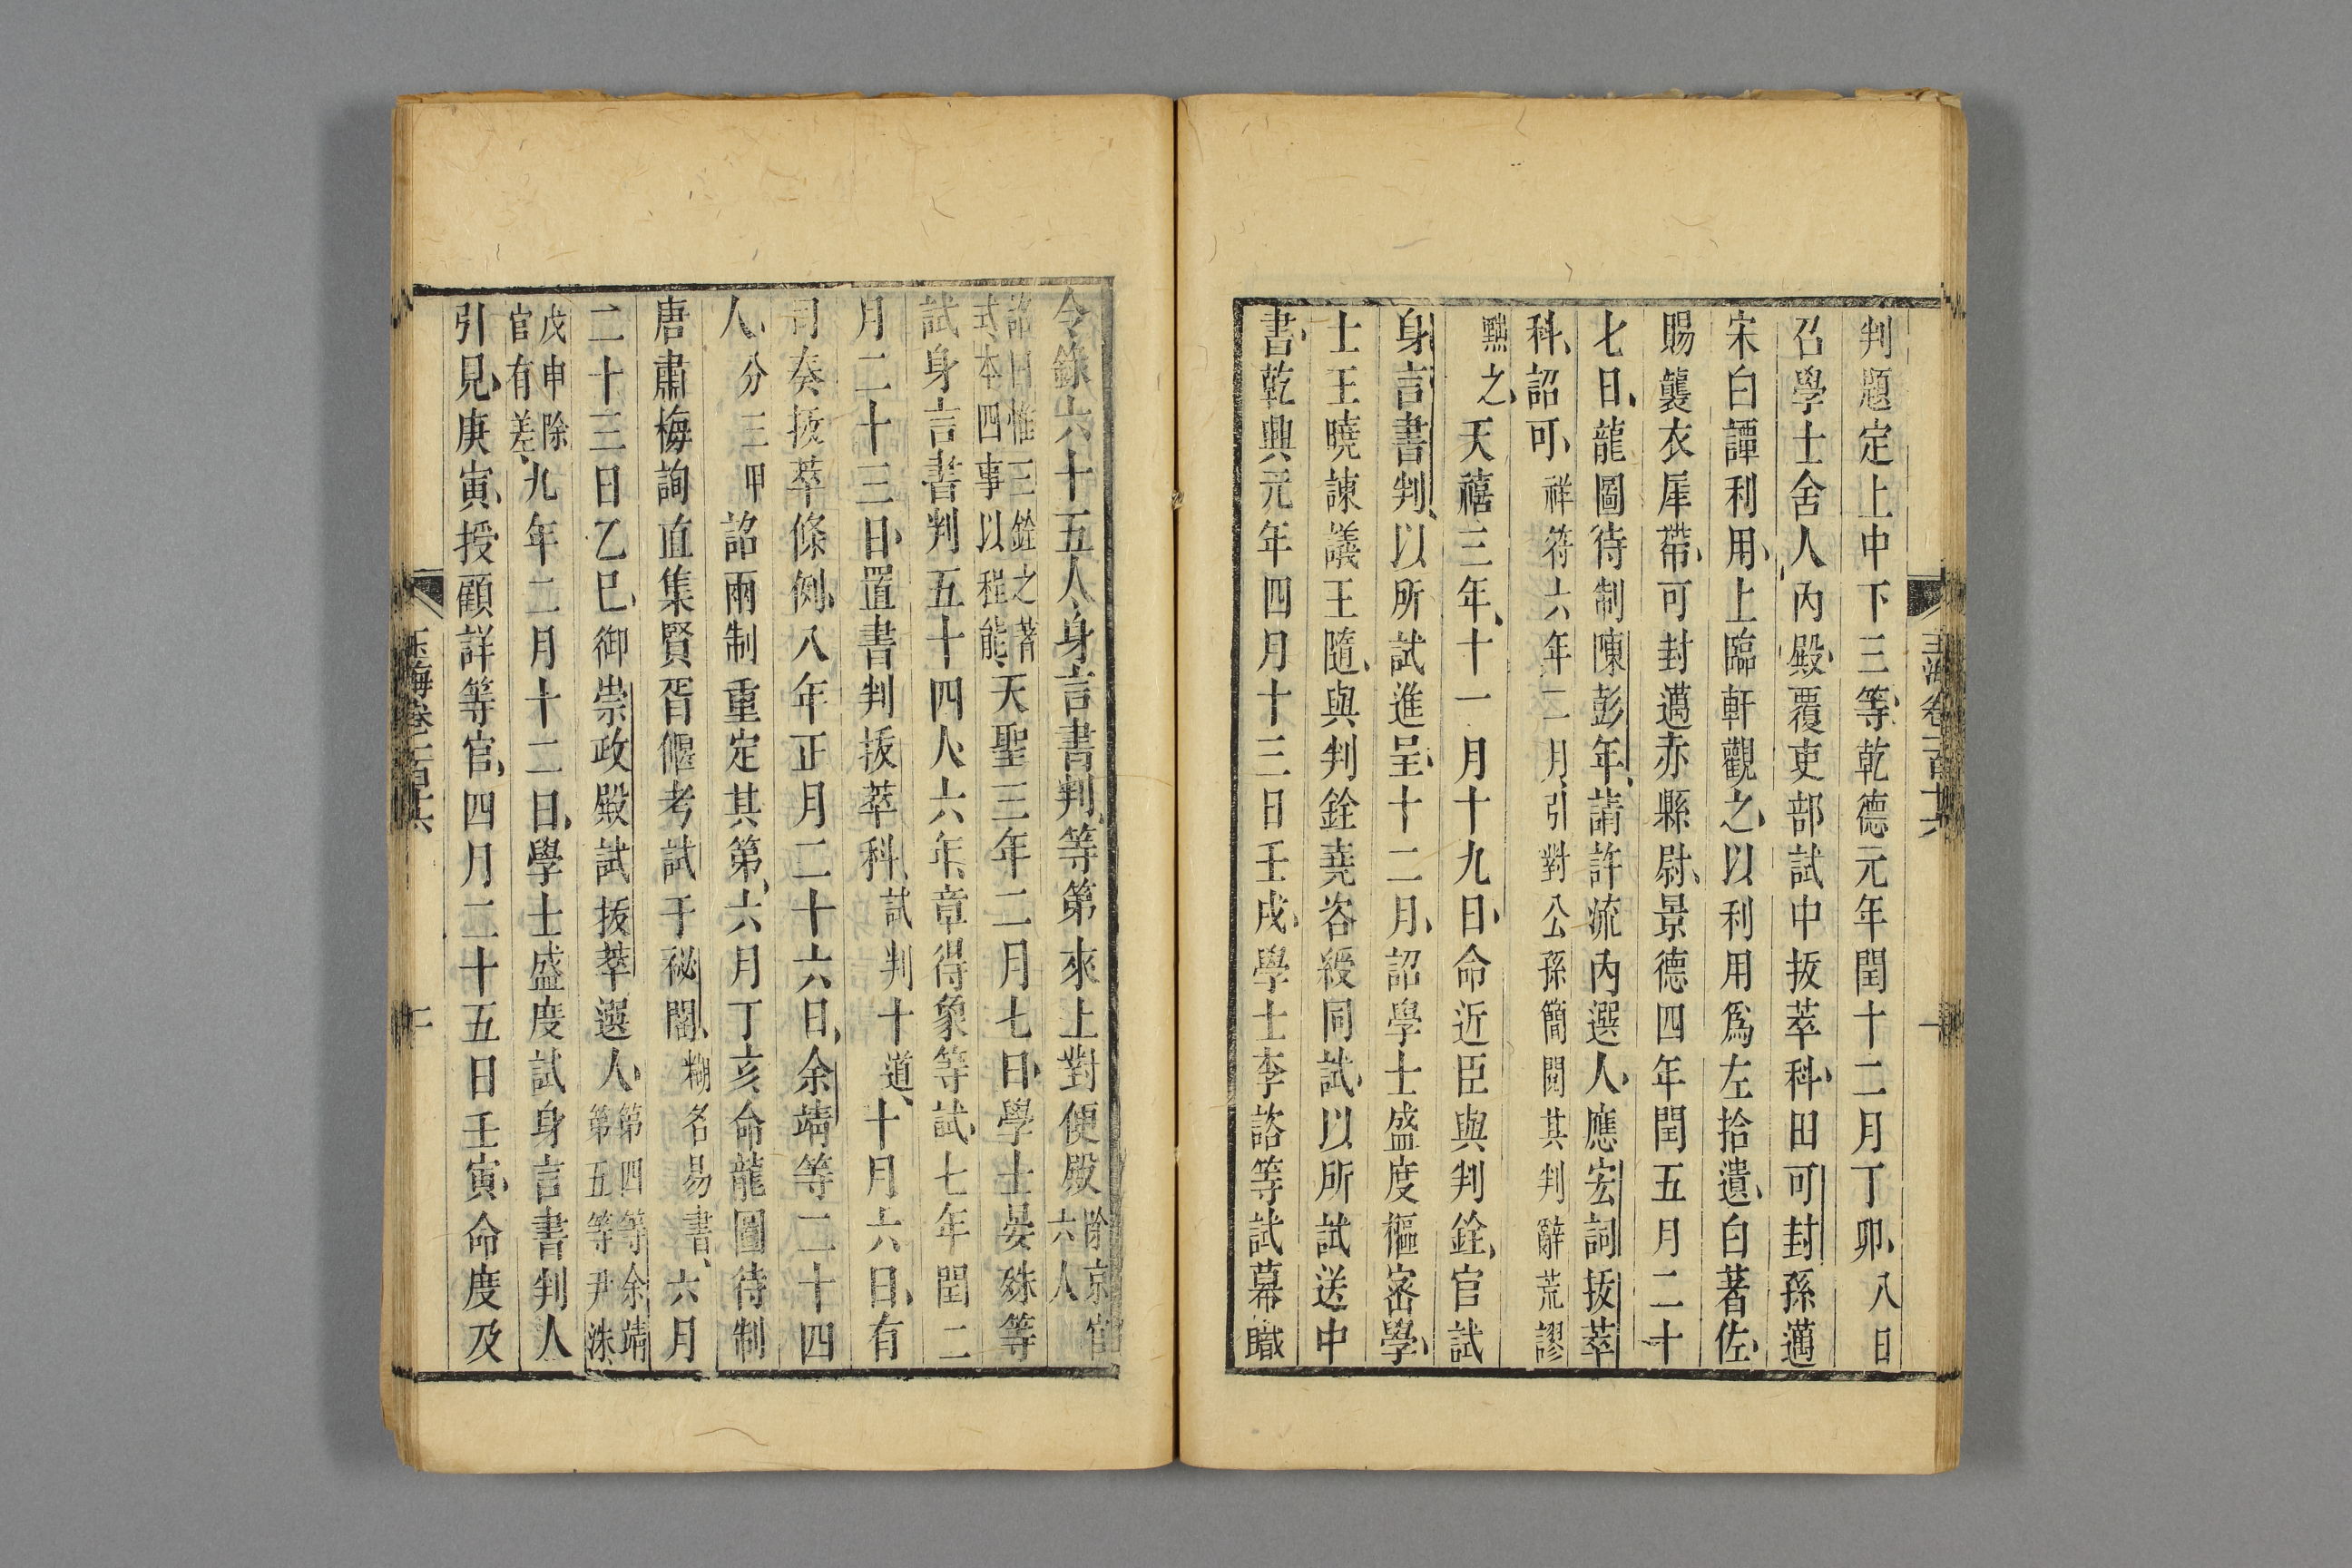 判題定上中下三等乾德元年閏十二月丁卯八日
召學士舍人內殿覆吏部試中拔萃科田可封孫邁
宋白譚利用上臨軒觀之以利用爲左拾遺白著佐
賜襲衣犀帶可封邁赤縣尉景德四年閏五月二十
七日龍圖待制陳彭年請許流內選人應宏詞拔萃
科詔可祥符六年二月引對公孫簡閱其判辭荒謬
黜之天禧三年十一月十九日命近臣與判銓官試
身言書判以所試進呈十二月詔學士盛度樞密學
士王曉諫議王隨與判銓堯咨綬同試以所試送中
書乾興元年四月十三日壬戌學士李諮等試幕職
令錄六十五人身言書判等第來上對便殿除京官
六人
詔曰惟三銓之著
式本四事以程能天聖三年二月七日學士晏殊等
試身言書判五十四人六年章得象等試七年閏二
月二十三日置書判拔萃科試判十道十月六日有
司奏拔萃條例八年正月二十六日余靖等二十四
人分三甲詔兩制重定其第六月丁亥命龍圖待制
唐肅梅詢直集賢胥偃考試于祕閣糊名易書六月
二十三日乙巳御崇政殿試拔萃選人第四等余靖
第五等尹洙
戊申除
官有差九年二月十二日學士盛度試身言書判人
引見庚寅授顧詳等官四月二十五日壬寅命度及
玉海卷一百十六